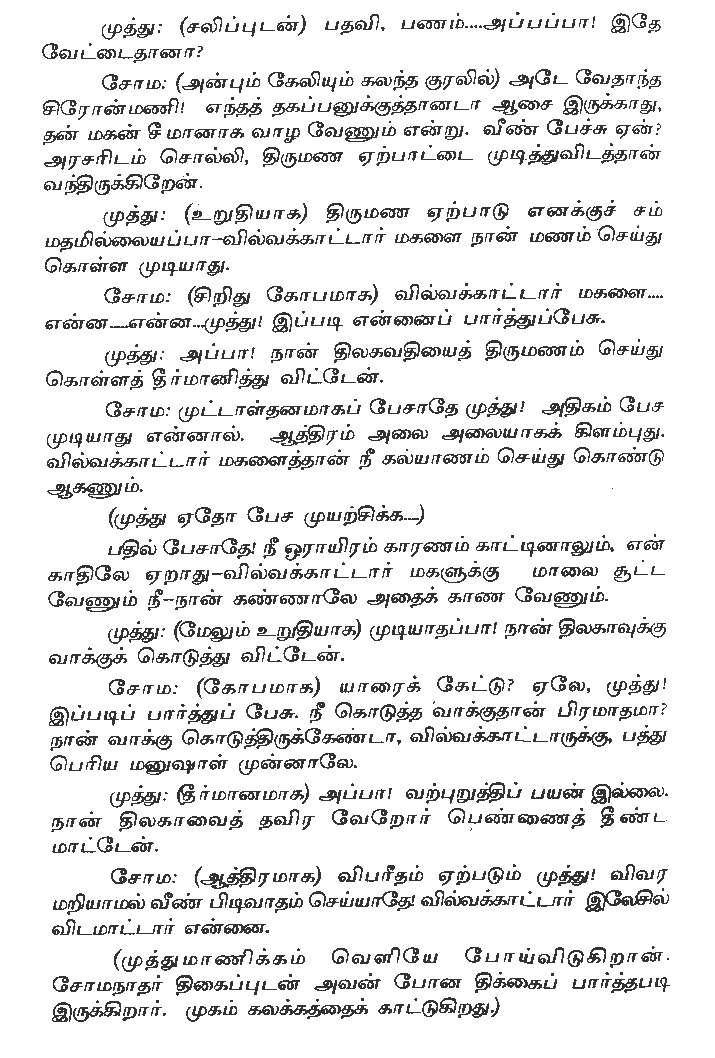 முத்து: (சலிப்புடன்) பதவி, பணம்....அப்பப்பா! இதே
வேட்டைதானா?
சோம: (அன்பும் கேலியும் கலந்த குரலில்) அடே வேதாந்த
சிரோன்மணி! எந்தத் தகப்பனுக்குத்தானடா ஆசை இருக்காது,
தன் மகன் சீமானாக வாழ வேணும் என்று. வீண் பேச்சு ஏன்?
அரசரிடம் சொல்லி, திருமண ஏற்பாட்டை முடித்துவிடத்தான்
வந்திருக்கிறேன்.
முத்து: (உறுதியாக) திருமண ஏற்பாடு எனக்குச் சம்
மதமில்லையப்பா-வில்வக்காட்டார் மகளை நான் மணம் செய்து
கொள்ள முடியாது.
சோம: (சிறிது கோபமாக) வில்வக்காட்டார் மகளை....
என்ன....என்ன...முத்து! இப்படி என்னைப் பார்த்துப்பேசு.
முத்து: அப்பா! நான் திலகவதியைத் திருமணம் செய்து
கொள்ளத் தீர்மானித்து விட்டேன்.
சோம: முட்டாள்தனமாகப் பேசாதே முத்து! அதிகம் பேச
முடியாது என்னால். ஆத்திரம் அலை அலையாகக் கிளம்புது.
வில்வக்காட்டார் மகளைத்தான் நீ கல்யாணம் செய்து கொண்டு
ஆகணும்.
(முத்து ஏதோ பேச முயற்சிக்க....)
பதில் பேசாதே! நீ ஒராயிரம் காரணம் காட்டினாலும், என்
காதிலே ஏறாது-வில்வக்காட்டார் மகளுக்கு மாலை சூட்ட
வேணும் நீ-நான் கண்ணாலே அதைக் காண வேணும்.
முத்து: (மேலும் உறுதியாக) முடியாதப்பா! நான் திலகாவுக்கு
வாக்குக் கொடுத்து விட்டேன்.
சோம: (கோபமாக) யாரைக் கேட்டு? ஏலே, முத்து!
இப்படிப் பார்த்துப் பேசு. நீ கொடுத்த வாக்குதான் பிரமாதமா?
நான் வாக்கு கொடுத்திருக்கேண்டா, வில்வக்காட்டாருக்கு, பத்து
பெரிய மனுஷாள் முன்னாலே.
முத்து: (தீர்மானமாக) அப்பா! வற்புறுத்திப் பயன் இல்லை.
நான் திலகாவைத் தவிர வேறோர் பெண்ணைத் தீண்ட
மாட்டேன்.
சோம: (ஆத்திரமாக) விபரீதம் ஏற்படும் முத்து! விவர
மறியாமல் வீண் பிடிவாதம் செய்யாதே! வில்வக்காட்டார் இலேசில்
விடமாட்டார் என்னை.
(முத்துமாணிக்கம் வெளியே போய்விடுகிறான்.
சோமநாதர் திகைப்புடன் அவன் போன திக்கைப் பார்த்தபடி
இருக்கிறார். முகம் கலக்கத்தைக் காட்டுகிறது.)